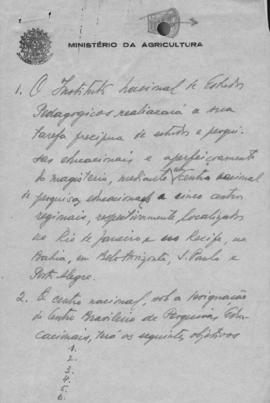 MINISTÉRIO DA AGRICULTURA
1. O Instituto Nacional de Estudos
Pedagogicos realizará a sua
tarefa precipua de estudos e pesqui-
sas educacionais e aperfeiçoamento
do magisterio, mediante um centro nacional
de pesquisas educacionais e cinco centros
regionais, respectivamente, localizados
no Rio de Janeiro e no Recife, na
Bahia, em Belo Horizonte, S. Paulo e
Porto Alegre.
2. O centro nacional, sob a designação
de Centro Brasileiro de Pesquisas Edu-
cacionais, terá os seguintes objetivos
1.
2.
3.
4.
5.
6.